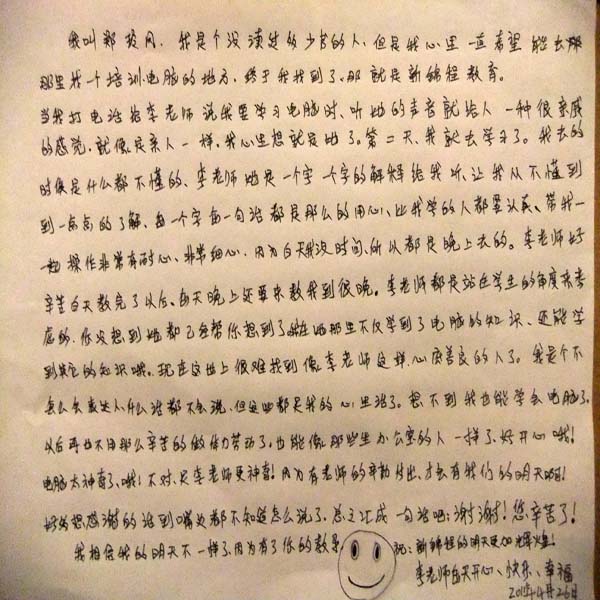 我叫郑 我是个没读过多少书的人,但是我心里一直希望能去那
那里找一个培训电脑的地方,终于我找到了,那就是新锦程教育。
当我打电话给李老师说我要学习电脑时,听她的声音就给人一种很亲戚
的感觉,就像是亲人一样,我心里想就是她了。第二天,我就去学习了。我去的
时候是什么都不懂的,李老师她是一个字一个字的解释给我听,让我从不懂到
到一点点的了解,每一个字每一句话都是那么的用心,比我学的人都要认真、带我一
起操作非常有耐心、非常细心,因为白天我没时间,所以都是晚上去的。李老师好
辛苦白天教完了以后、每天晚上还要来教我到很晚。李老师都是站在学生的角度来考
虑的,你没想到她都已经帮你想到了,我在她那里不仅学到了电脑的知识、还能学
到其它的知识哦。现在这世上很难找到像李老师这样心底善良的人了。我是个不
怎么会表达人,什么话都不会说,但这些都是我的心里话了。想不到我也能学会电脑了,
以后再也不用那么辛苦的做体力劳动了,也能像那些坐办公室的人一样了,好开心哦!
电脑太神奇了,哦!不对,是李老师更神奇!因为有老师的辛勤付出,才会有我们的明天啊!
好多想感谢的话到嘴边都不知道怎么说了,总之汇成一句话吧:谢谢!您辛苦了!
我相信我的明天不一样了,因为有了你的教导。 祝:新锦程的明天更加辉煌!
李老师白天开心、快乐、幸福
4月26日